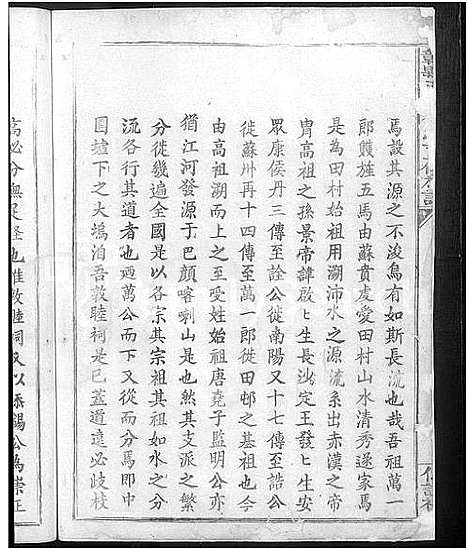 焉設其源之不浚烏有如斯長流也哉吾祖萬一
郎䕶旌五馬由蘇貴虔愛田村山水清秀遂家焉
是為田村始祖用溯沛水之源流系出赤漢之帝
胄高祖之孫景帝諱啟㇑生長沙定王發㇑生安
眾康侯丹三傳至詮公徙南陽又十七傳至誥公
徙蘇州再十四傳至萬一郎徙田邨之基祖也
由高祖溯而上之至受姓始祖唐堯子監明公亦
猶江河發源于巴顏喀喇山是也然其支派之繁
分徙幾遍全國是以各宗其宗祖其祖如水之分
流各行其道者也廼萬公而下又從而分焉即中
圓墟下之大塢㳙吾敦睦祠是巳蓋道遠必歧枝
高必分無足怪也惟敦睦祠又以添錫公為崇正